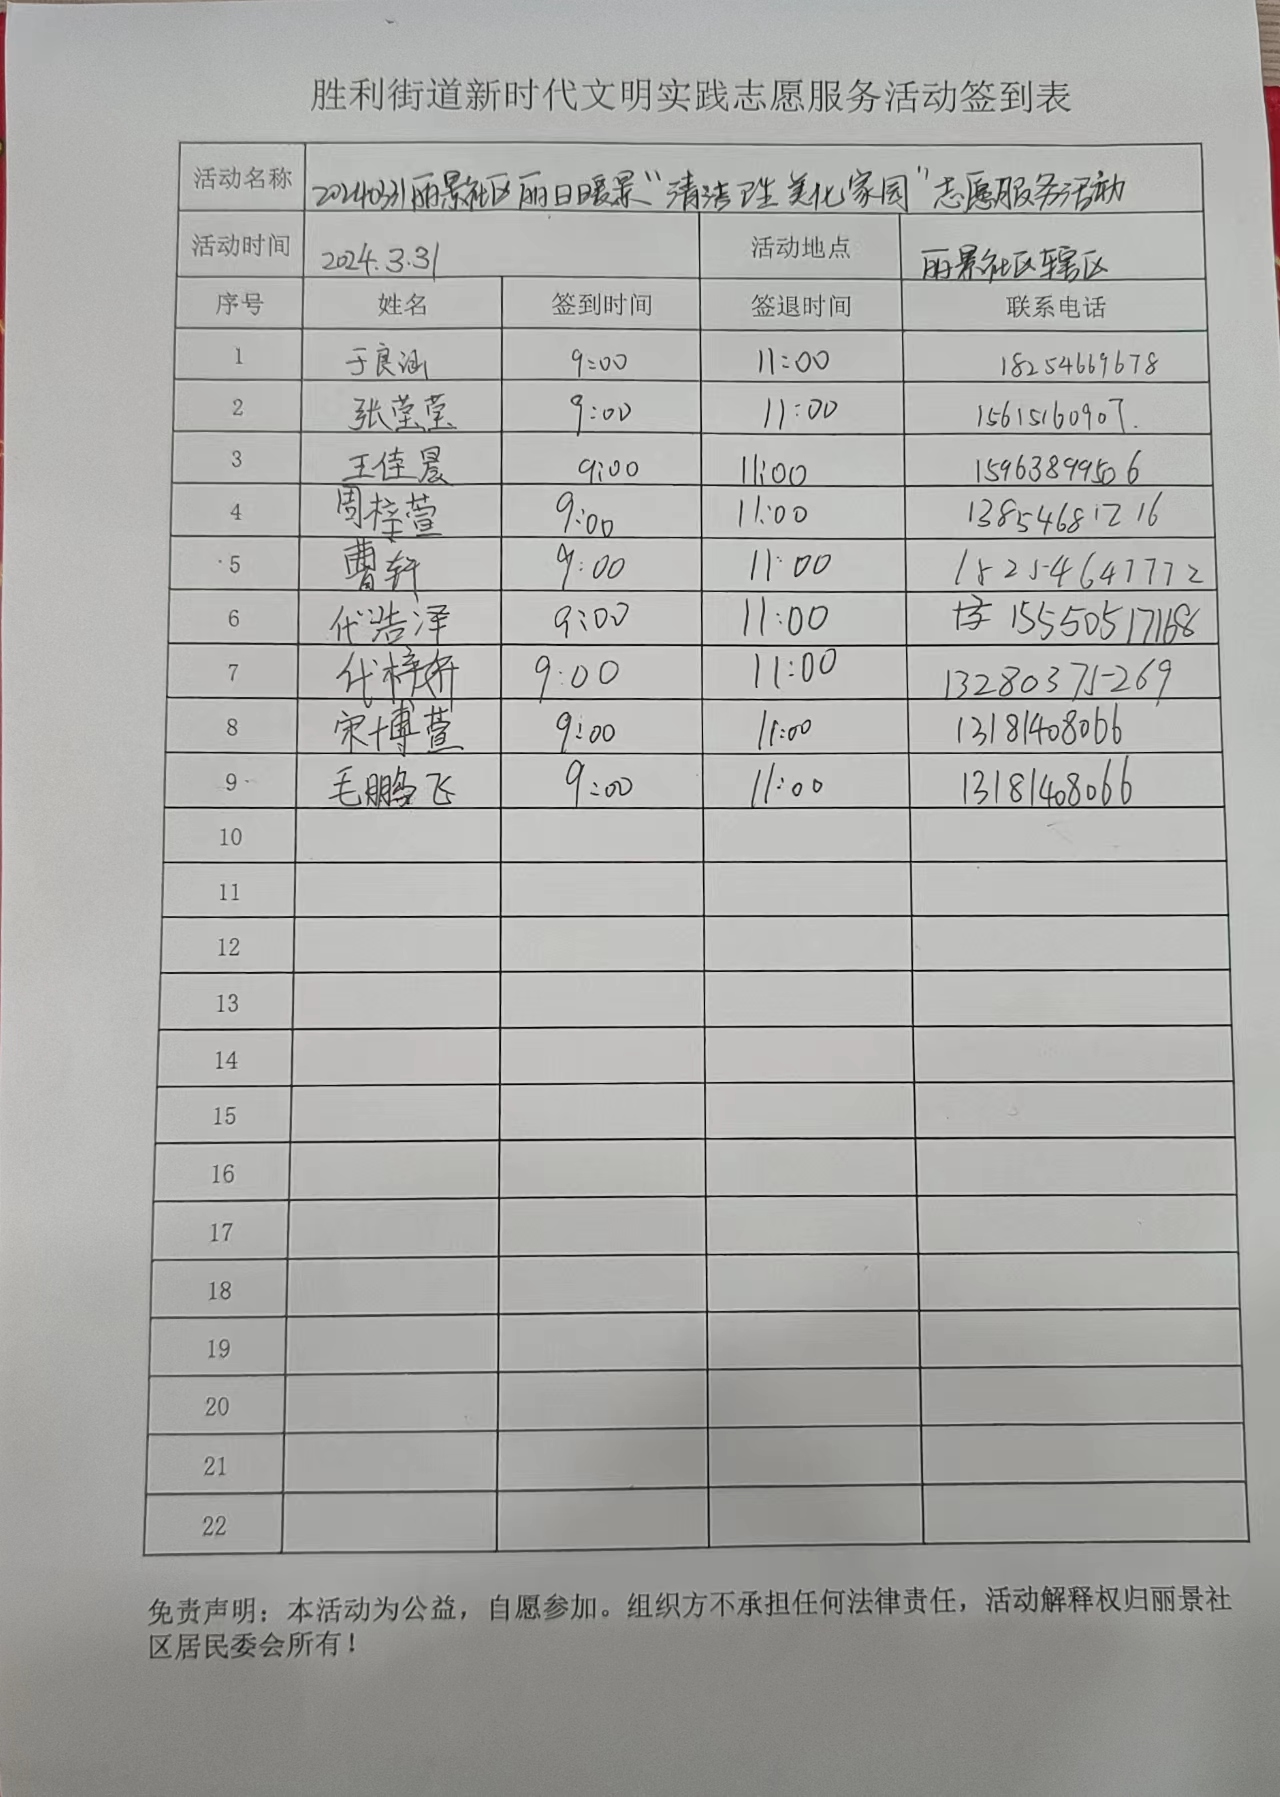 胜利街道新时代文明实践志愿服务活动签到表
活动名称 20240331丽景社区丽日暖景“清洁卫生 美化家园”志愿服务活动
活动时间 2024.3.31 活动地点 丽景社区辖区
序号 姓名 签到时间 签退时间 联系电话
1 于良涵 9:00 11:00 18254669678
2 张莹莹 9:00 11:00 15615160907.
3 王佳晨 9:00 11:00 15963899506
4 周梓萱 9:00 11:00 13854681216
5 曹轩 9:00 11:00 18254647772
6 代浩泽 9:00 11:00 15550517168
7 代梓妍 9:00 11:00 13280375269
8 宋博萱 9:00 11:00 13181408066
9 毛鹏飞 9:00 11:00 13181408066
10
11
12
13
14
15
16
17
18
19
20
21
22
免责声明：本活动为公益，自愿参加。组织方不承担任何法律责任，活动解释权归丽景社
区居民委会所有！